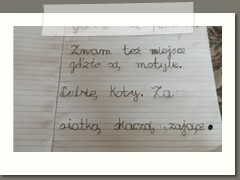 Znam też miejsce
gdzie są motyle.
Lubię koty. Za
siatką skaczą zające.